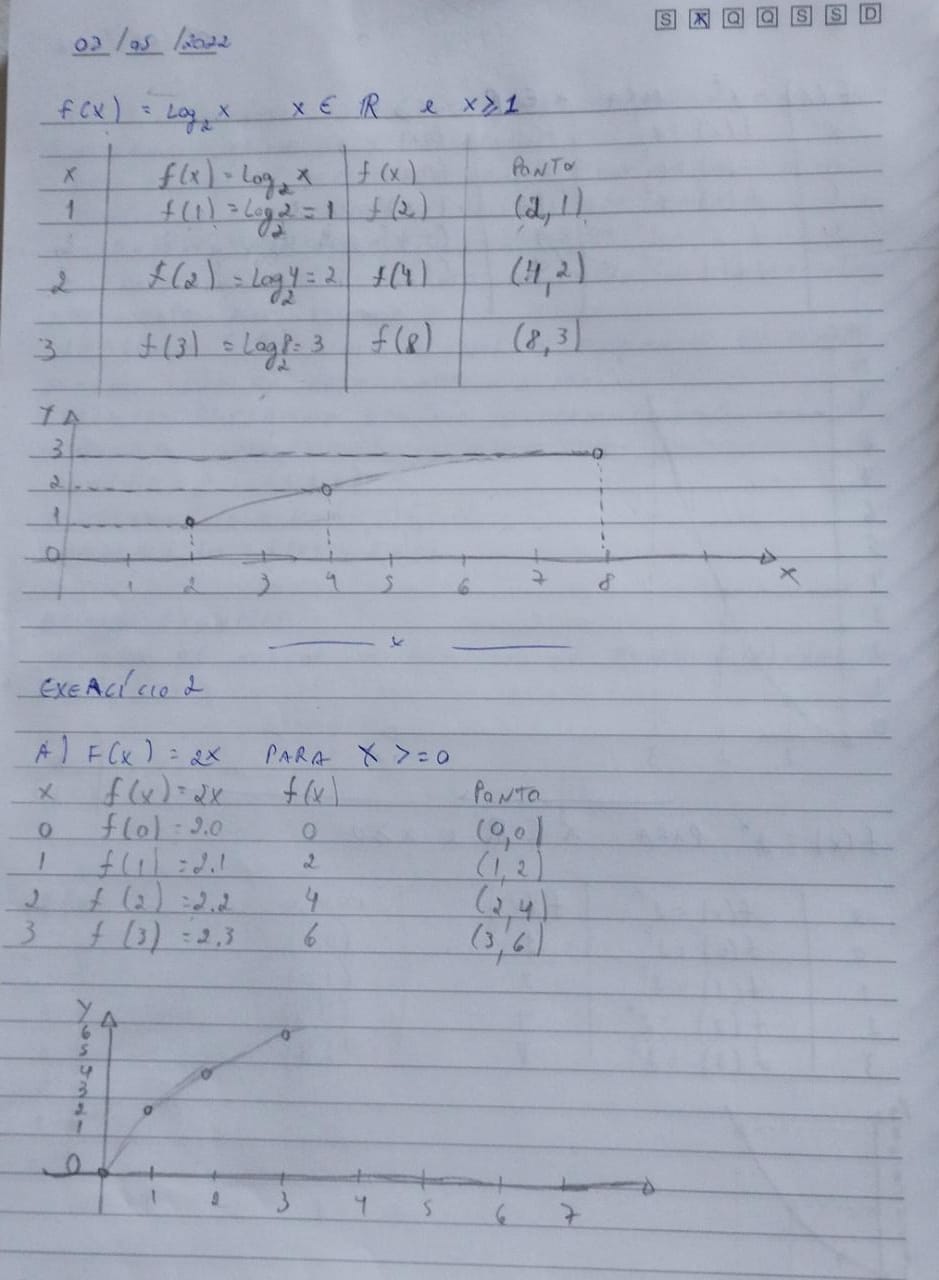 S T Q Q S S D
03/05/2022
f(x) = Log₂ x x ∈ ℝ e x ≥ 1
x f(x) = Log₂ x f(x) PONTO
1 f(1) = Log₂ 2 = 1 f(2) (2,1)
2 f(2) = Log₂ 4 = 2 f(4) (4,2)
3 f(3) = Log₂ 8 = 3 f(8) (8,3)
Y
3
2
1
0
1 2 3 4 5 6 7 8 x
x
EXERCÍCIO 2
A) F(x) = 2x PARA X >= 0
x f(x) = 2x f(x) PONTO
0 f(0) = 2.0 0 (0,0)
1 f(1) = 2.1 2 (1,2)
2 f(2) = 2.2 4 (2,4)
3 f(3) = 2.3 6 (3,6)
Y
6
5
4
3
2
1
0
1 2 3 4 5 6 7